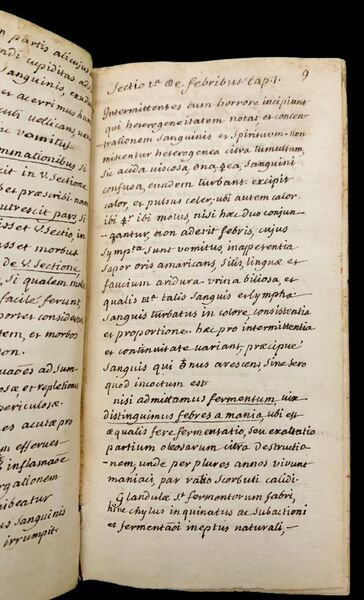 n partis alicujus
ndi cupiditas ad
Sanguinis, exuda
et acerrimus hum
uli uellicans uen
ac vomitus
mnationibus si
cit in V. Sectione
et præscribi nam
utrescit pars, si
sset V. Sectio, in
asset et morbus
de V. Sectione
, Si quatem mo
facile, ferunt,
portet considera
et, in morbos
non.
uaões ad sum
osæ, et repletiones
periculosæ.
es acutæ pro
m efferuet
inflamaõe
rgationem
hibeatur
is sanguinis
irrumpit
Sectio 1ª De febribus Cap. 1. 9
Intermittentes cum horrore incipiunt
qui heterogeneitatem notat et concen-
trationem Sanguinis et Spirituum. non
miscentur heterogenea citra tumultum,
Su acida uiscosa, ona, Sanguini
confusa, eundem turbant. excipit
calor, et pulsus celer, ubi autem calor
ibi motus, nisi hæc duo conjun-
gantur, non aderit febris, cujus
sympta sunt vomitus, inappetentia
sapor oris amaricans, Sitis, linguæ et
faucium aridura. vrina biliosa, et
qualis talis sanguis et lympha
Sanguis turbatus in colore, consistentia
et proportione. hæc pro intermittentia
et continuitate variant, præcipue
sanguis qui arescens, Sine sero
quod incoctum est.
nisi admittamus fermentum uix
distinguimus febres a mania, ubi est
æqualis fere fermentatio, seu exaltatio
partium oleosarum citra destructio
nem, unde per plures annos vivunt
maniaci, par ratio scorbuti calidi.
Glandulæ St fermentorum fabri,
hinc chylus inquinatus ac subactioni
et fermentaõi ineptus naturali,